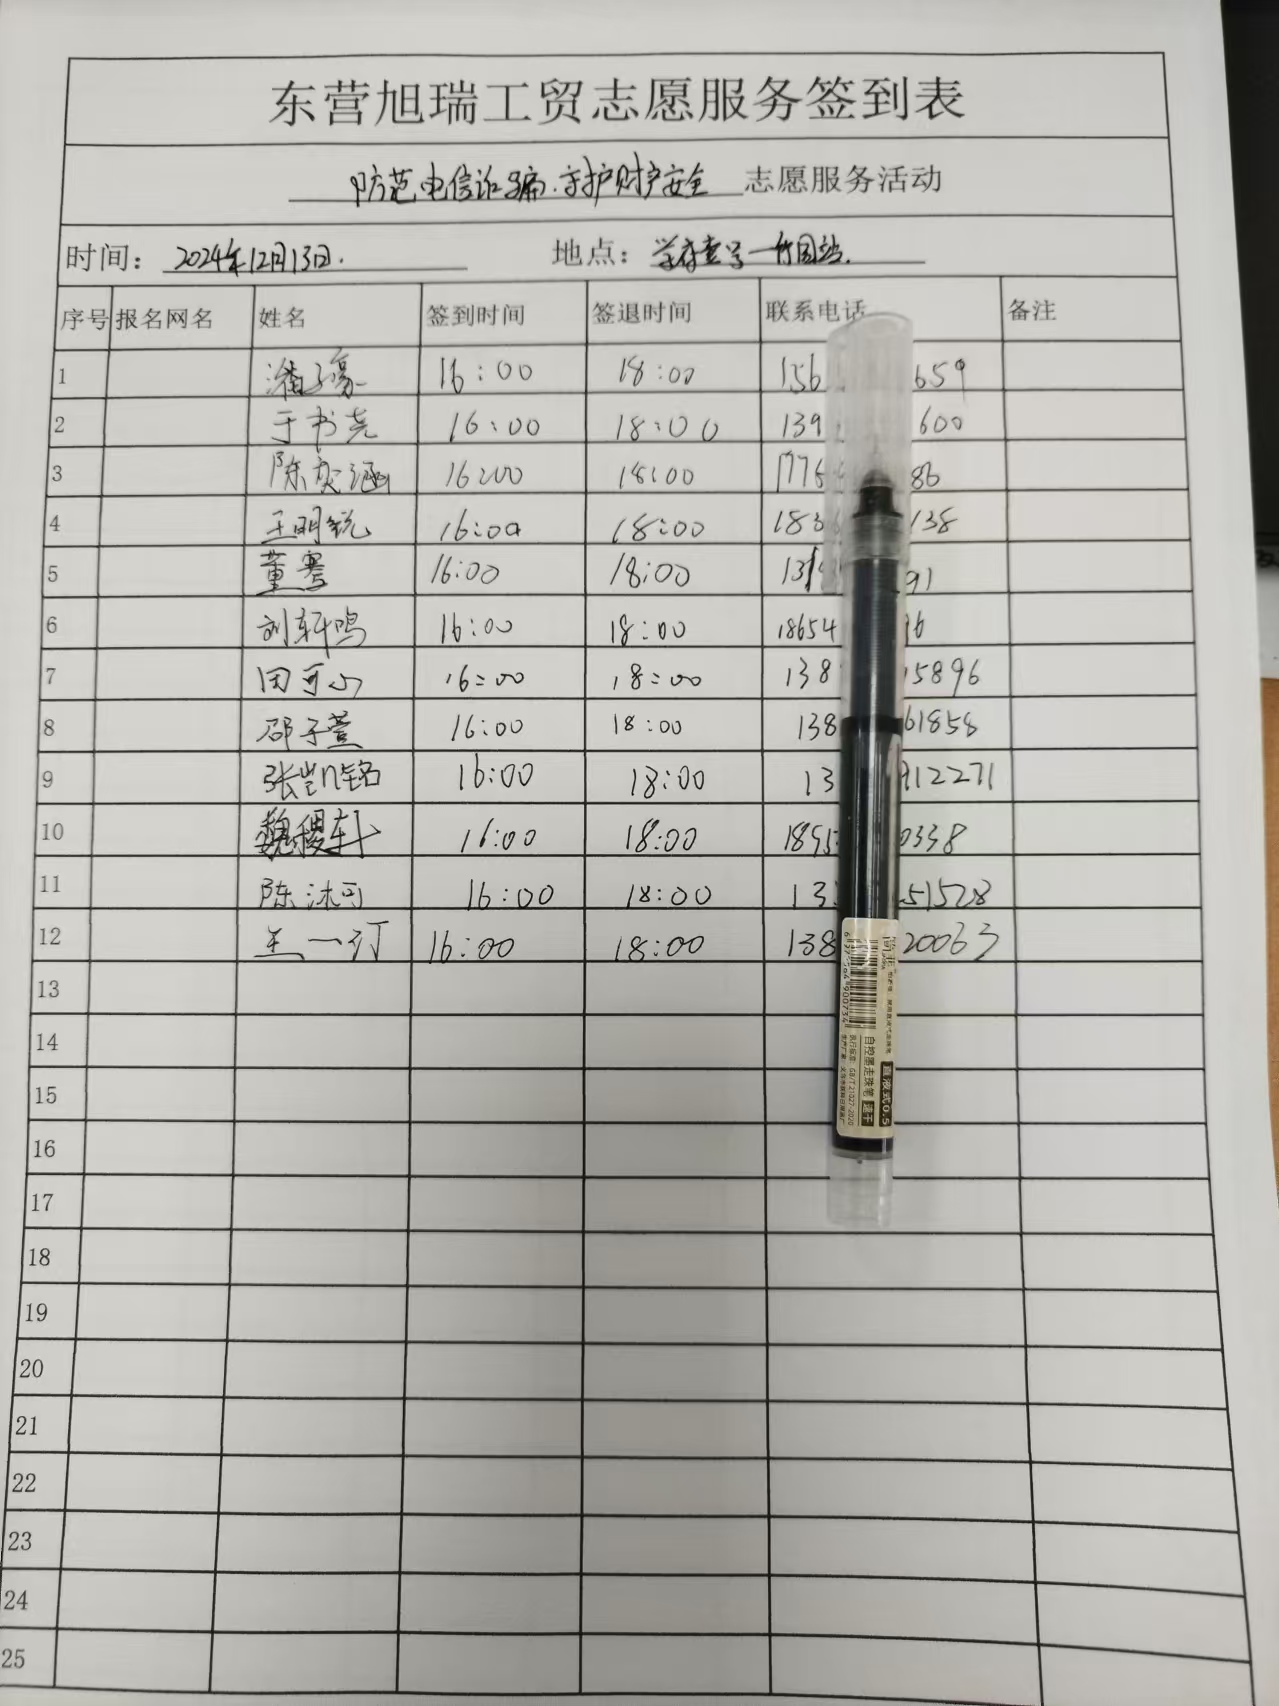 东营旭瑞工贸志愿服务签到表
防范电信诈骗.守护财产安全 志愿服务活动
时间： 2024年12月13日. 地点： 学府壹号一竹园站.
序号 报名网名 姓名 签到时间 签退时间 联系电话 备注
1 潘子豪 16:00 18:00 156 659
2 于书尧 16:00 18:00 139 600
3 陈奕涵 16:00 18:00 1776 86
4 王明锐 16:00 18:00 183 138
5 董骞 16:00 18:00 131 91
6 刘轩鸣 16:00 18:00 18654 96
7 田可心 16:00 18:00 138 15896
8 邵子萱 16:00 18:00 138 61858
9 张凯铭 16:00 18:00 13 912271
10 魏稷轩 16:00 18:00 1895 0338
11 陈沐可 16:00 18:00 13 51528
12 王一订 16:00 18:00 138 20063
13
14
15
16
17
18
19
20
21
22
23
24
25
直液式0.5
自控墨走珠笔 速干
执行标准：GB/T 21827-2020